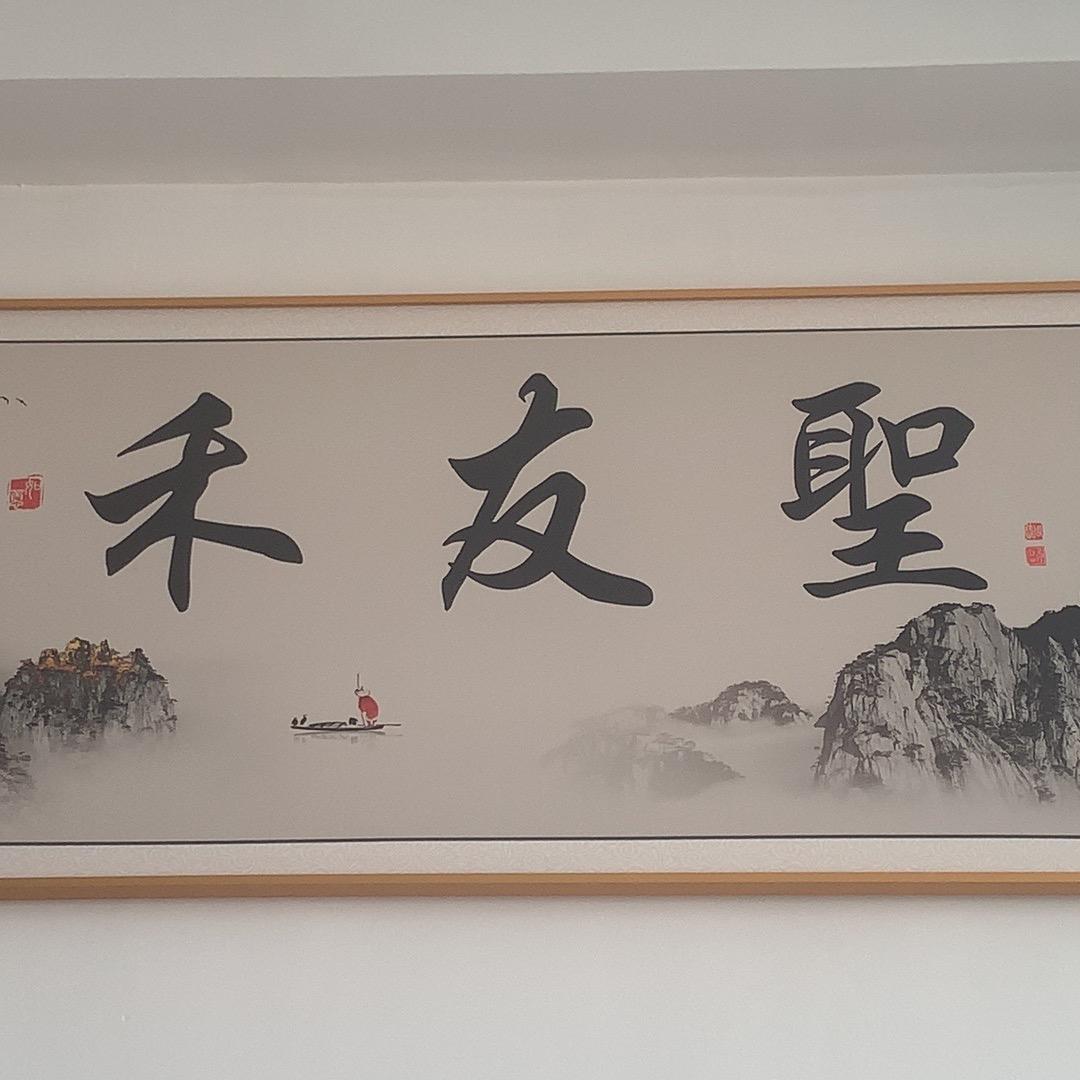 聖友禾